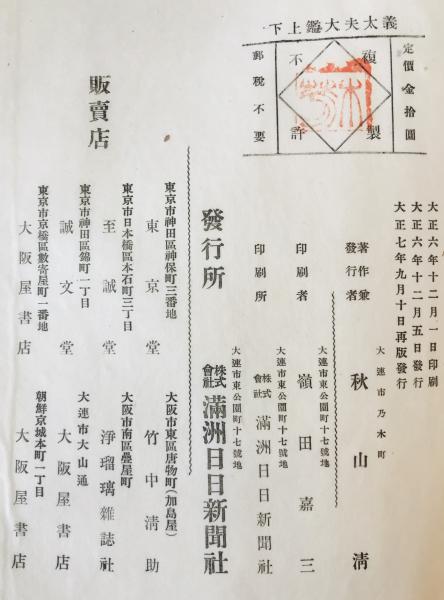 義太夫大鑑上下
定價金拾圓
複製
不許
郵稅不要
大正六年十二月一日印刷
大正六年十二月五日發行
大正七年九月十日再版發行
大連市乃木町
著作兼發行者 秋山淸
大連市東公園町十七號地
印刷者 嶺田嘉三
大連市東公園町十七號地
印刷所 株式會社 滿洲日日新聞社
發行所 株式會社 滿洲日日新聞社
販賣店
東京市神田區神保町三番地
東京堂
東京市日本橋區本石町三丁目
至誠堂
東京市神田區錦町一丁目
誠文堂
東京市京橋區數寄屋町一番地
大阪屋書店
大阪市東區唐物町(加島屋)
竹中淸助
大阪市南區疊屋町
淨瑠璃雜誌社
大連市大山通
大阪屋書店
朝鮮京城本町一丁目
大阪屋書店